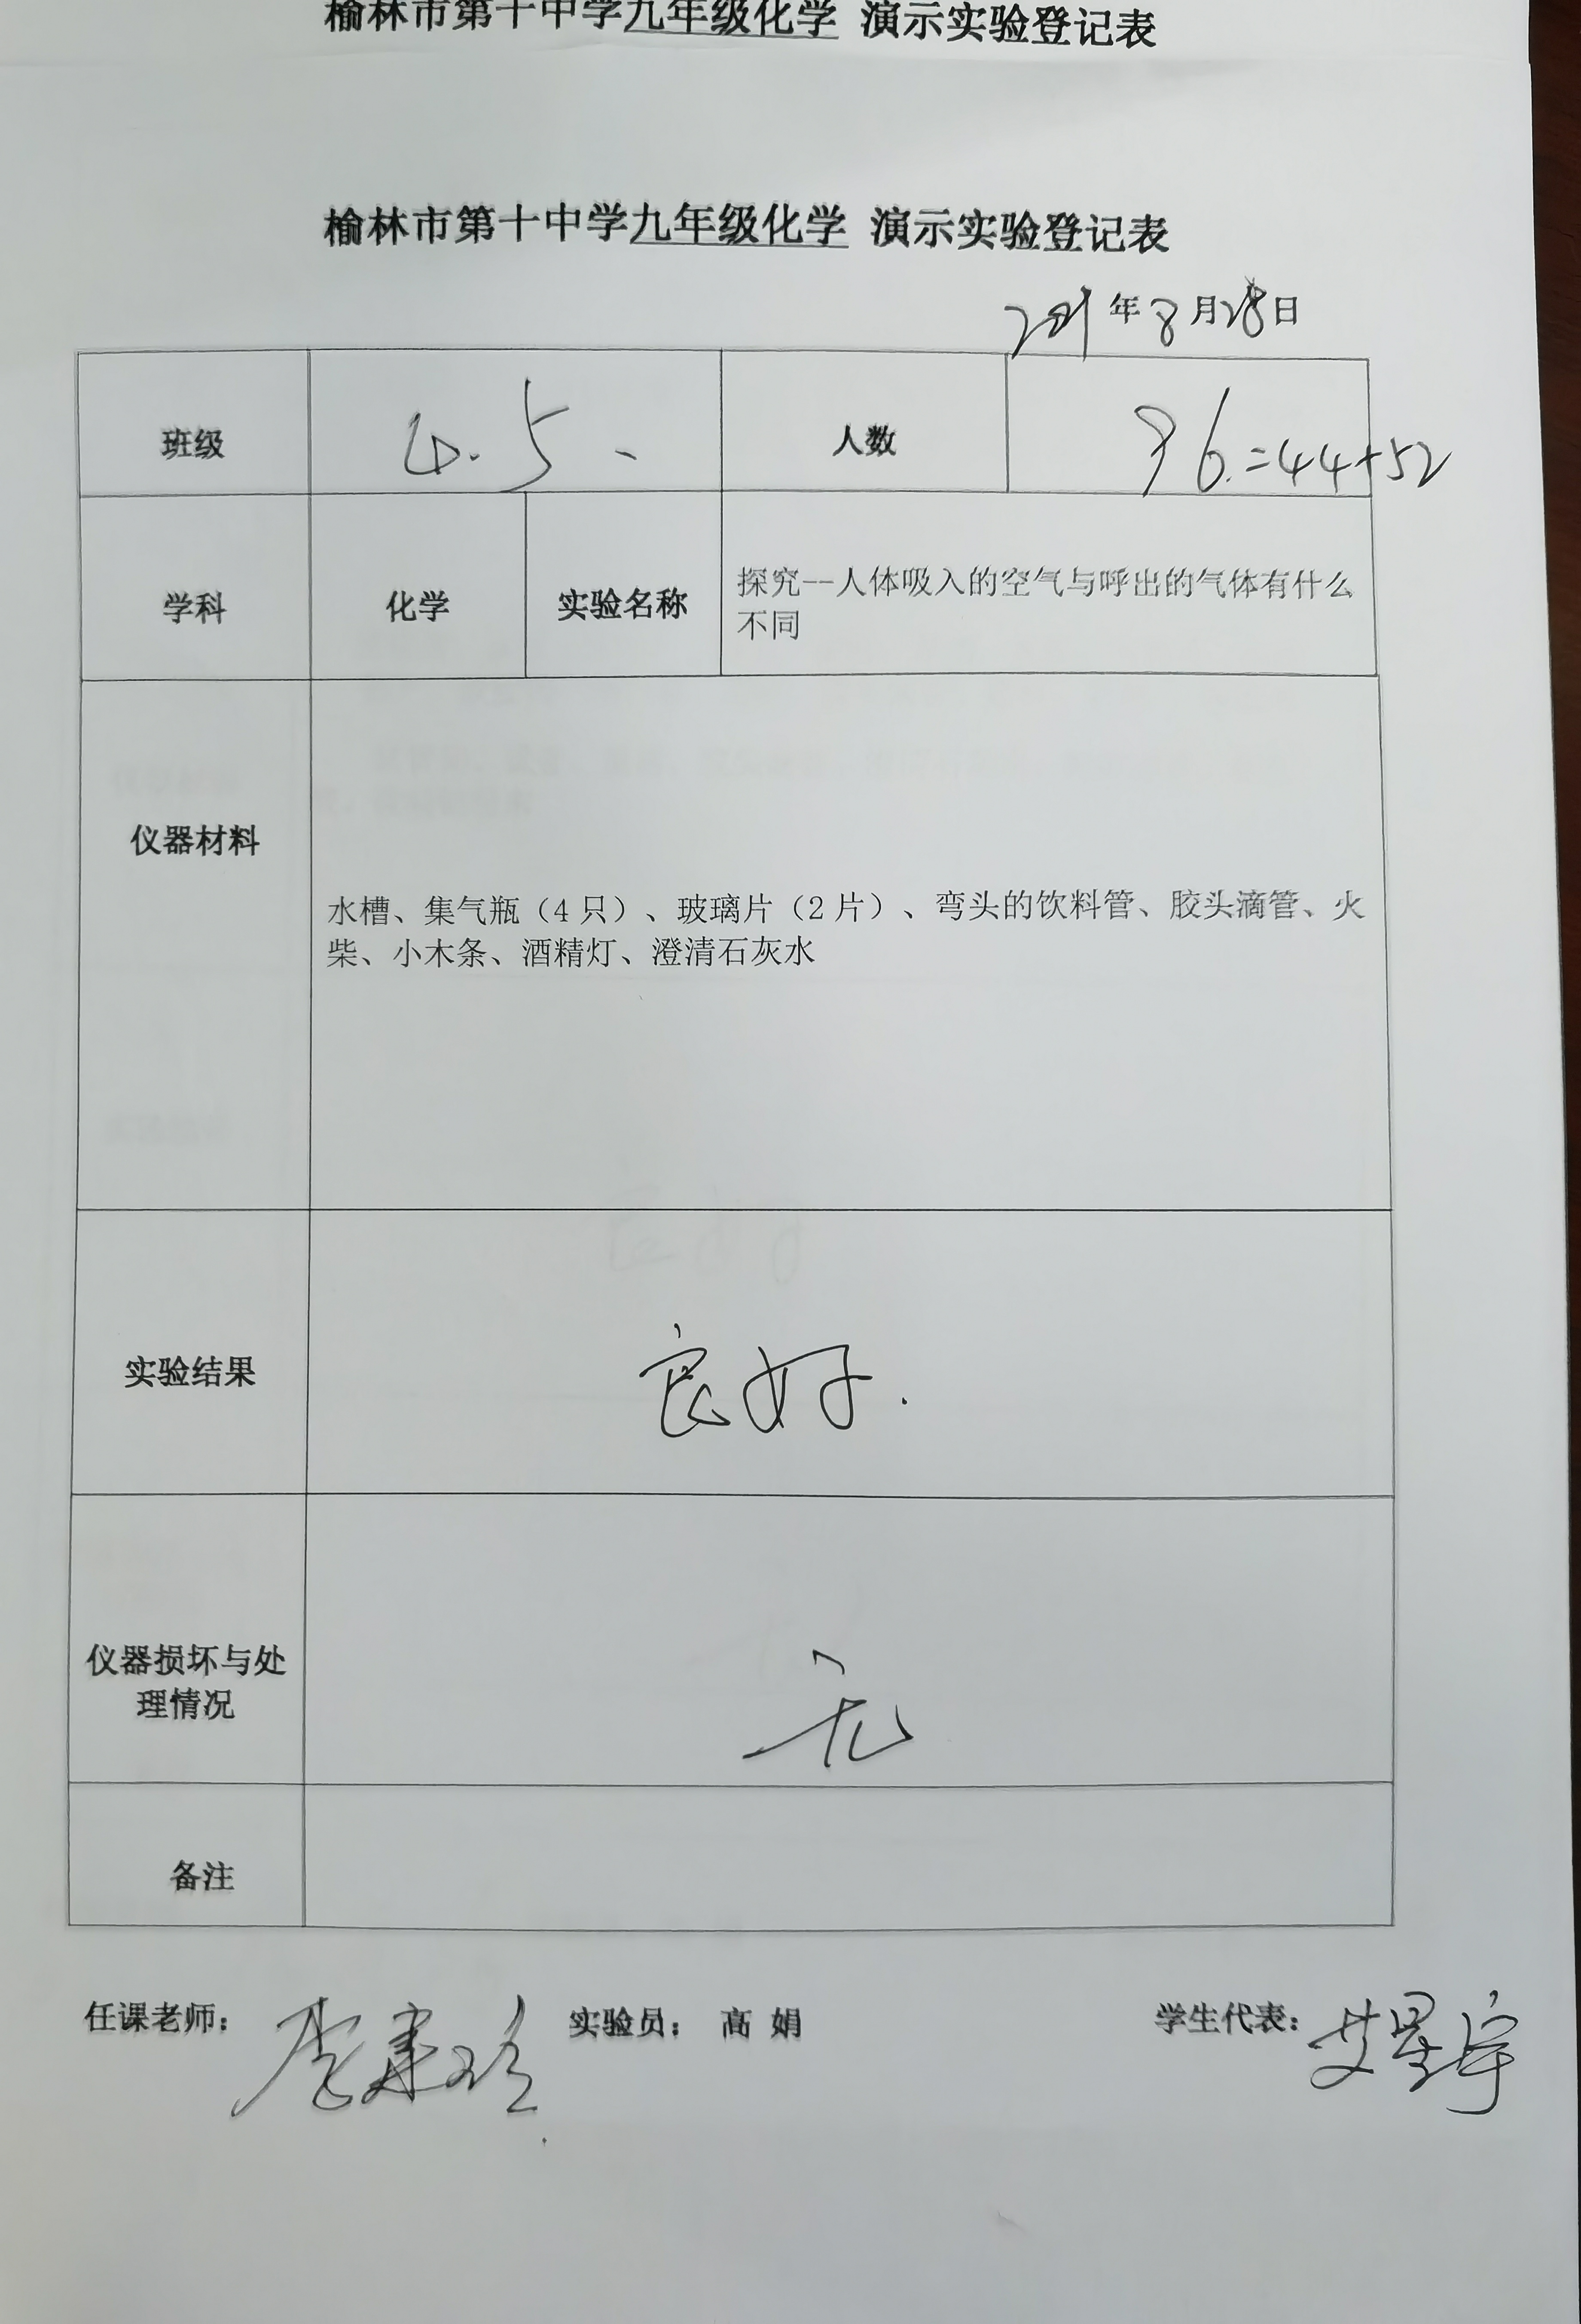 榆林市第十中学九年级化学 演示实验登记表
榆林市第十中学九年级化学 演示实验登记表
2021年8月28日
班级 4.5、 人数 96.=44+52
学科 化学 实验名称 探究--人体吸入的空气与呼出的气体有什么
不同
仪器材料
水槽、集气瓶（4只）、玻璃片（2片）、弯头的饮料管、胶头滴管、火
柴、小木条、酒精灯、澄清石灰水
实验结果 良好.
仪器损坏与处
理情况
无
备注
任课老师： 李建玲 实验员： 高 娟 学生代表： 艾星宇